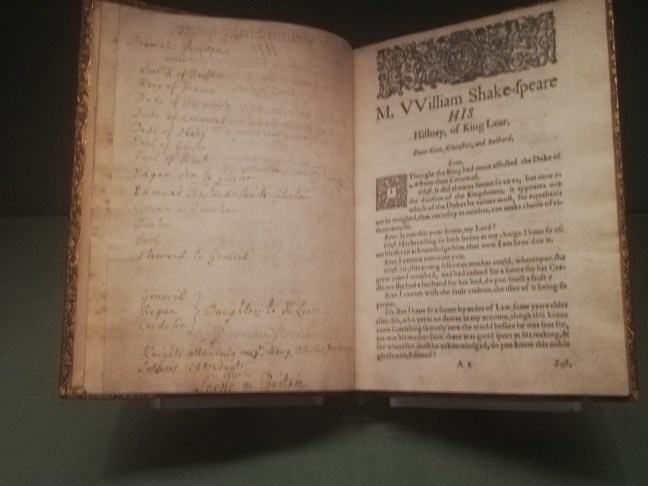 Dramatis Personae
Lear K of Brittain
King of France
Duke of Burgundy
Duke of Cornwal
Duke of Albany
Earl of Gloster
Earl of Kent
Edgar Son to Gloster
Edmund Bastard Son to Gloster
Curan a Courtier
Doctor
Fool
Steward to Gonerill
Gonerill
Regan
Cordelia
Daughters to K Lear
Knights attending
Scene in Britain
M. VVilliam Shake-ſpeare
HIS
Hiſtory, of King Lear.
Enter Kent, Gloucſter, and Baſtard.
Kent.
I Thought the King had more affected the Duke of
Albany then Cornwell.
Gloſt. It did alwaies ſeeme ſo to vs, but now in
the diuiſion of the Kingdomes, it appeares not
which of the Dukes he values moſt, for equalities
are ſo weighed, that curioſity in neither, can make choiſe of ei-
thers moytie.
Kent. Is not this your ſonne, my Lord?
Gloſt. His breeding ſir hath beene at my charge. I haue ſo of-
ten bluſht to acknowledge him, that now I am braz'd to it.
Kent. I cannot conceiue you.
Gloſt. Sir, this young fellowes mother could, whereupon ſhe
grew round wombed, and had indeed ſir a ſonne for her Cra-
dle ere ſhe had a husband for her bed, do you ſmell a fault?
Kent. I cannot wiſh the fault vndone, the iſſue of it being ſo
proper.
Gloſt. But I haue ſir a ſonne by order of Law, ſome yeare elder
then this, who yet is no dearer in my account, though this knaue
came ſomething ſawcily into the world before he was ſent for,
yet was his mother faire, there was good ſport at his making, &
the whoreſon muſt be acknowledged, do you know this noble
gentleman, Edmund?
A 2
Baſt.